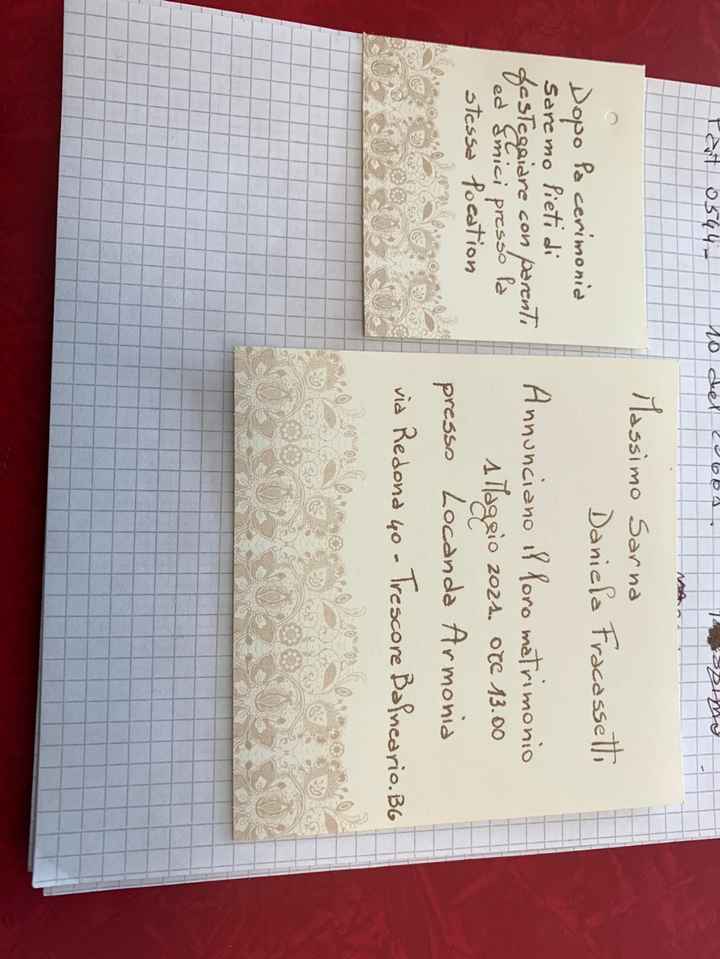 Dopo la cerimonia
saremo lieti di
festeggiare con parenti
ed amici presso la
stessa location
Massimo Sarna
Daniela Fracassetti
Annunciano il loro matrimonio
1 Maggio 2021. ore 13.00
presso Locanda Armonia
via Redona 40 - Trescore Balneario. BG
0544-
10 del